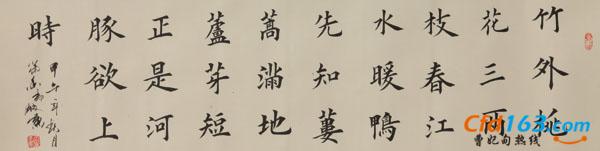 竹外桃
花三兩
枝春江
水暖鴨
先知蔞
蒿滿地
蘆芽短
正是河
豚欲上
時
甲午年秋月
Cfd163.com
曹妃甸热线